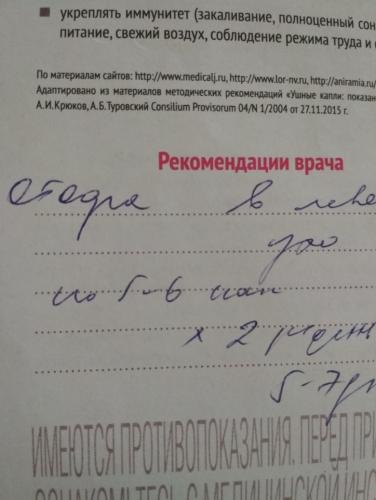 укреплять иммунитет (закаливание, полноценный сон
питание, свежий воздух, соблюдение режима труда и о
По материалам сайтов: http://www.medicalj.ru, http://www.lor-nv.ru, http://aniramia.ru/
Адаптировано из материалов методических рекомендаций «Ушные капли: показан
А.И.Крюков, А.Б.Туровский Consilium Provisorum 04/N 1/2004 от 27.11.2015 г.
Рекомендации врача
в лево
ухо
по 5-6 кап
x 2 р/день
5-7 дн
ИМЕЮТСЯ ПРОТИВОПОКАЗАНИЯ. ПЕРЕД ПРИ
ОЗНАКОМЬТЕСЬ С МЕДИЦИНСКОЙ ИНС